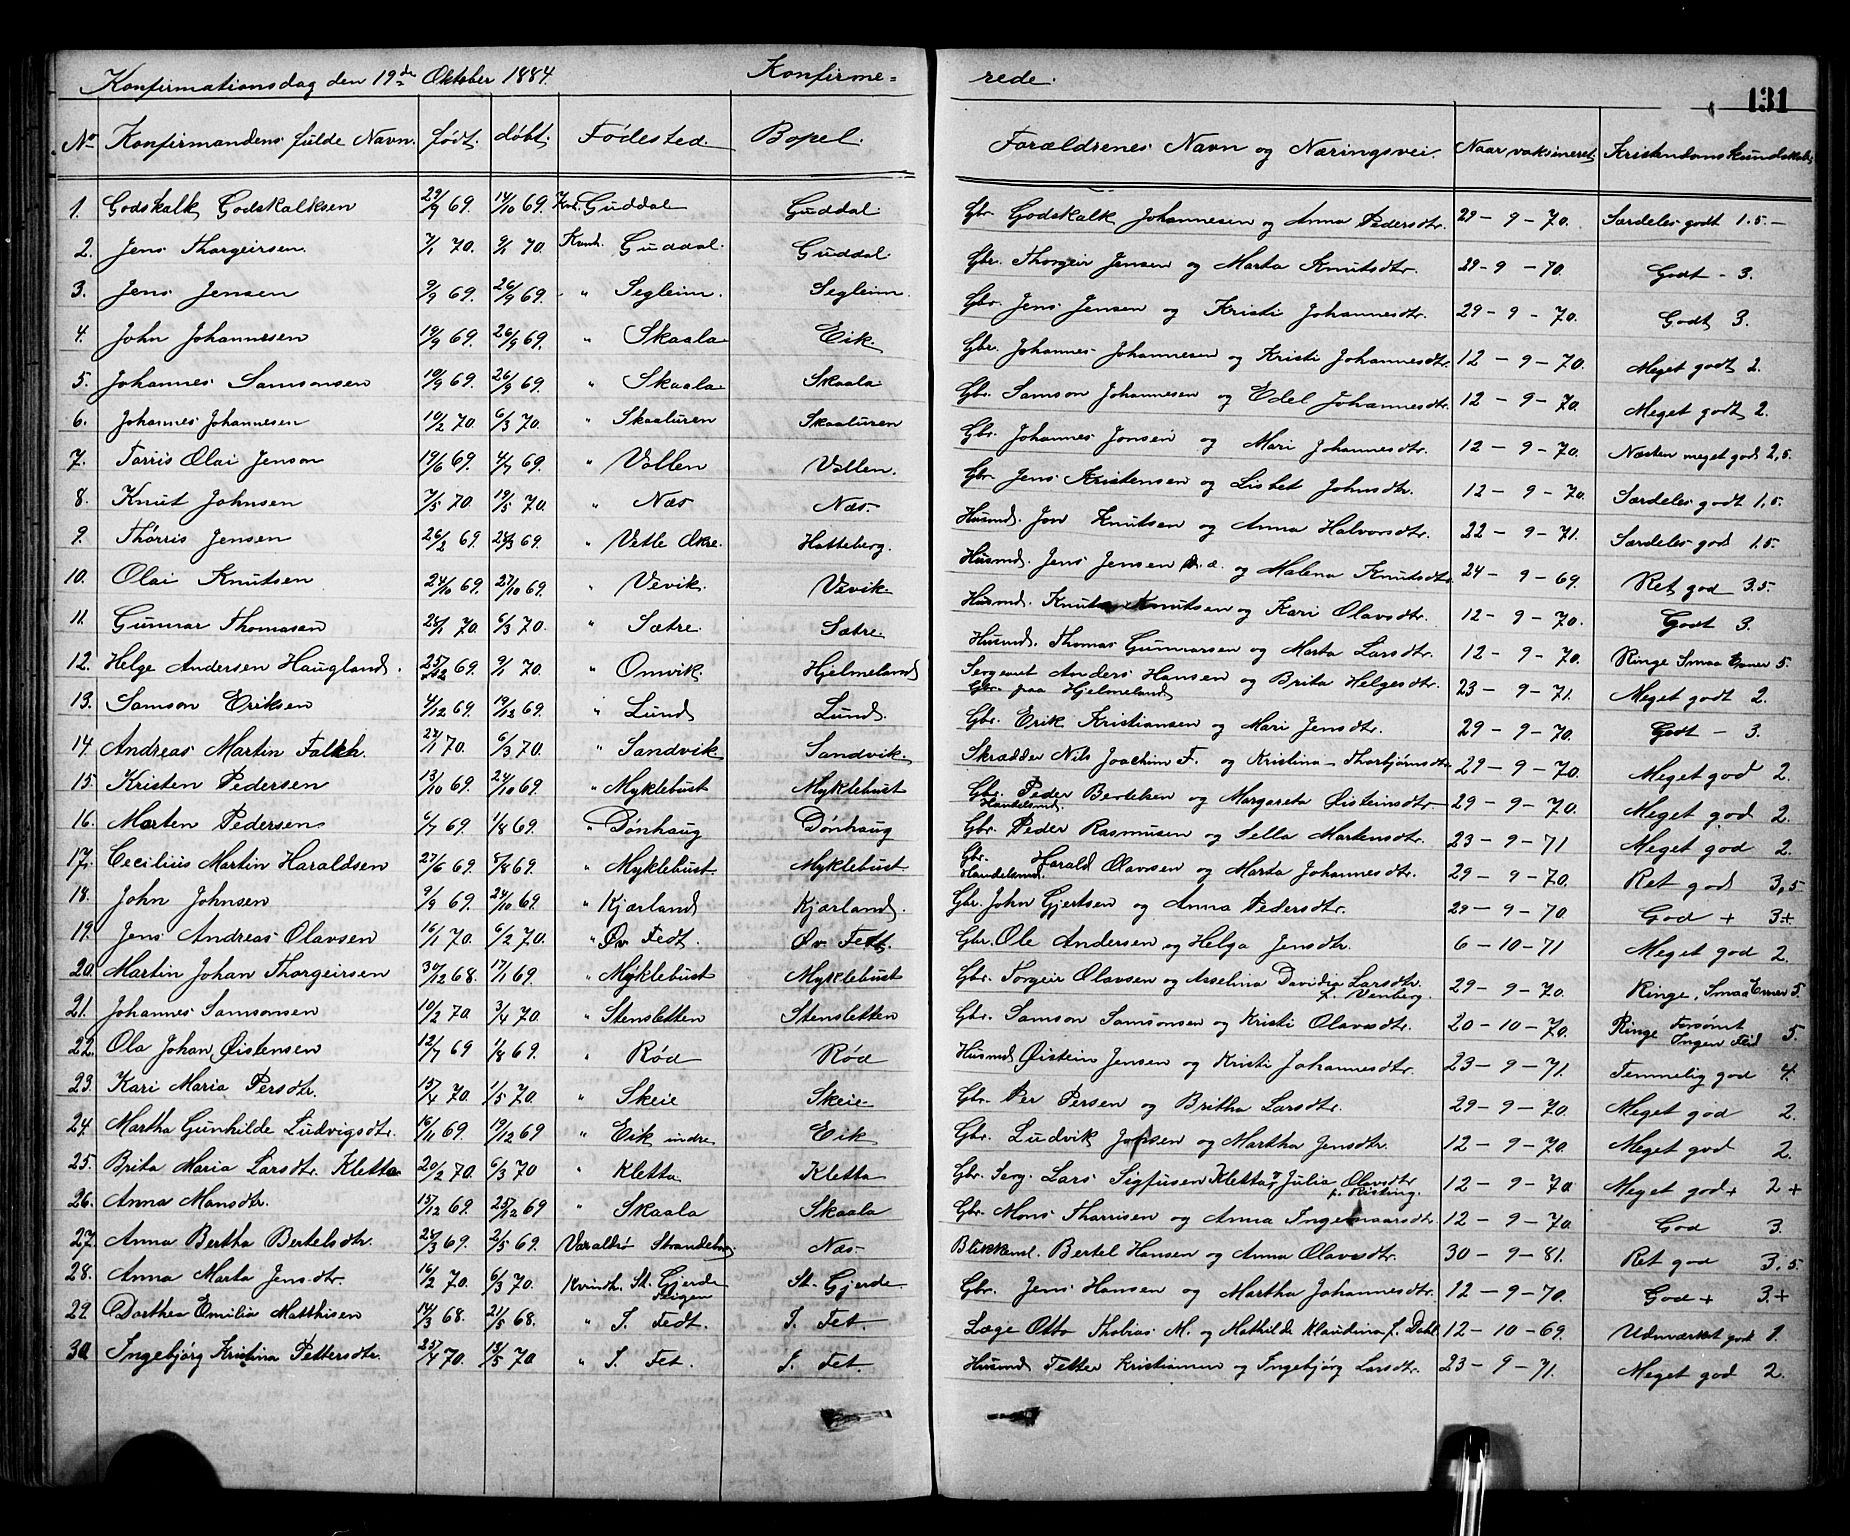 Konfirmationsdag den 19de Oktober 1884. Konfirme= rede. 131
No Konfirmandens fulde Navn. født. døbt. Fødested. Bopel. Forældrenes Navn og Næringsvei. Naar vaksineret Kristendomskundskab
1. Godskalk Godskalksen 29/9 69. 14/10 69. Guddal Guddal. Gbr. Godskalk Johannesen og Anna Pedersdtr. 29-9-70. Særdeles godt 1.5.-
2. Jens Thorgeirsen. 7/1 70. 9/1 70. Kvinh. Guddal. Guddal. Gbr. Thorgeir Jensen og Marta Knutsdtr. 29-9-70. Godt - 3.
3. Jens Jensen 9/9 69. 26/9 69. " Segleim. Segleim. Gbr. Jens Jensen og Kristi Johannesdtr. 29-9-70. Godt 3.
4. John Johannesen 19/9 69. 26/9 69. " Skaala Eik Gbr. Johannes Johannesen og Kristi Johannesdtr. 12-9-70. Meget godt 2.
5. Johannes Samsonsen 10/9 69. 26/9 69. " Skaala Skaala Gbr. Samson Johannesen og Edel Johannesdtr. 12-9-70. Meget godt 2.
6. Johannes Johannesen 10/2 70. 6/3 70. " Skaaluren Skaaluren Gbr. Johannes Jonsen og Mari Johannesdtr. 12-9-70. Næsten meget god 2,5.
7. Torris Olai Jenson 19/6 69. 4/7 69. " Vollen Vollen. Gbr. Jens Kristensen og Lisbet Johnsdtr. 12-9-70. Særdeles godt 1.5.
8. Knut Johnsen 7/5 70. 19/5 70. " Næs Næs. Husmd. Jon Knutsen og Anna Halvorsdtr. 22-9-71. Særdeles god 1.5.
9. Thorris Jensen 26/2 69. 28/3 69. " Vetle Okre. Hatteberg. Husmd. Jens Jensen og Malena Knutsdtr 24-9-69. Ret god 3.5.
10. Olai Knutsen 24/10 69. 27/10 69. " Vevik. Vevik. Husmd. Knut Knutsen og Kari Olavsdtr. 12-9-70. Godt 3.
11. Gunnar Thomasen 28/1 70. 6/3 70. " Sætre. Sætre. Husmd. Thomas Gunnarsen og Marta Larsdtr. 12-9-70. Ringe Smaa Evner 5.
12. Helge Andersen Haugland. 25/12 69. 9/1 70. " Omvik. Hjelmeland Sergeant Anders Hansen og Brita Helgesdtr. 23-9-71. Meget godt 2.
Gbr. paa Hjelmeland
13. Samson Eriksen 4/12 69. 19/12 69. " Lund Lund. Gbr. Erik Kristiansen og Mari Jensdtr. 29-9-70. Godt - 3.
14. Andreas Martin Falkh. 24/1 70. 6/3 70. " Sandvik. Sandvik. Skrædder Nils Joachim F. og Kristina Thorbjørnsdtr 29-9-70. Meget god 2.
15. Kristen Pedersen 13/10 69. 24/10 69. " Myklebust Myklebust Gbr. Handelsmd. Peder Bertelsen og Margareta Øisteinsdtr 29-9-70. Meget god 2.
16. Morten Pedersen 6/7 69. 1/8 69. " Dønhaug Dønhaug Gbr. Peder Rasmusen og Sella Martensdtr. 23-9-71 Meget god 2.
17. Cecilius Martin Haraldsen 27/6 69. 8/8 69. " Myklebust Myklebust Gbr. Handelsmd. Harald Olavsen og Marta Johannesdtr. 29-9-70. Ret god 3,5
18. John Johnsen 9/9 69. 24/10 69. " Kjærland Kjærland. Gbr. John Gjertsen og Anna Pedersdtr. 29-9-70. God + 3+
19. Jens Andreas Olavsen 16/1 70. 6/2 70. " Øv. Fedt. Øv. Fedt. Gbr. Ole Andersen og Helga Jensdtr. 6-10-71 Meget god 2.
20. Martin Johan Thorgeirsen 30/12 68. 17/1 69. " Myklebust Myklebust Gbr. Torgeir Olavsen og Asselina Davidia Larsdtr. f. Venberg. 29-9-70. Ringe, Smaa Evner 5.
21. Johannes Samsonsen 10/2 70 3/4 70. " Stensletten Stensletten Gbr. Samson Samsonsen og Kristi Olavsdtr. 20-10-70. Ringe Forsømt Ingen Flid 5.
22. Ola Johan Øistensen 12/7 69 1/8 69. " Rød Rød Husmd Øistein Jensen og Kristi Johannesdtr. 23-9-71. Temmelig god 4.
23. Kari Maria Persdtr. 15/4 70. 1/5 70 " Skeie Skeie Gbr. Per Persen og Britha Larsdtr. 29-9-70. Meget god 2.
24. Martha Gunhilde Ludvigsdtr. 16/11 69. 19/12 69 " Eik indre Eik Gbr. Ludvik Jonsen og Martha Jensdtr. 12-9-70. Meget god 2.
25. Brita Maria Larsdtr. Kletta 20/2 70. 6/3 70 " Kletta Kletta Gbr. Serg. Lars Sigfusen Kletta, Julia Olavsdtr f. Risting. 12-9-70 Meget god + 2+
26. Anna Monsdtr. 15/12 69. 25/12 69 " Skaala Skaala Gbr. Mons Thorrisen og Anna Ingemaarsdtr 12-9-70. God 3.
27. Anna Bertha Bertelsdtr. 24/3 69. 2/5 69. Varaldsø Strandebarm Næs Blikkensl. Bertel Hansen og Anna Olavsdtr. 30-9-81. Ret god 3.5.
28. Anna Marta Jensdtr. 16/2 70. 6/3 70. Kvindh. St. Gjerde St. Gjerde Gbr. Jens Hansen og Martha Johannesdtr. 12-9-70. God + 3.+
29. Dorthea Emilia Matthisen 14/3 68. 21/5 68. " I. Fedt. I. Fet. Læge Otto Thobias M. og Mathilde Klaudina f. Dahl 12-10-69. Udmærket god 1.
30 Ingebjørg Kristina Pettersdtr. 23/4 70. 15/5 70 " I. Fet. I. Fet. Husmd Petter Kristiansen og Ingebjørg Larsdtr. 23-9-71. Meget god 2.